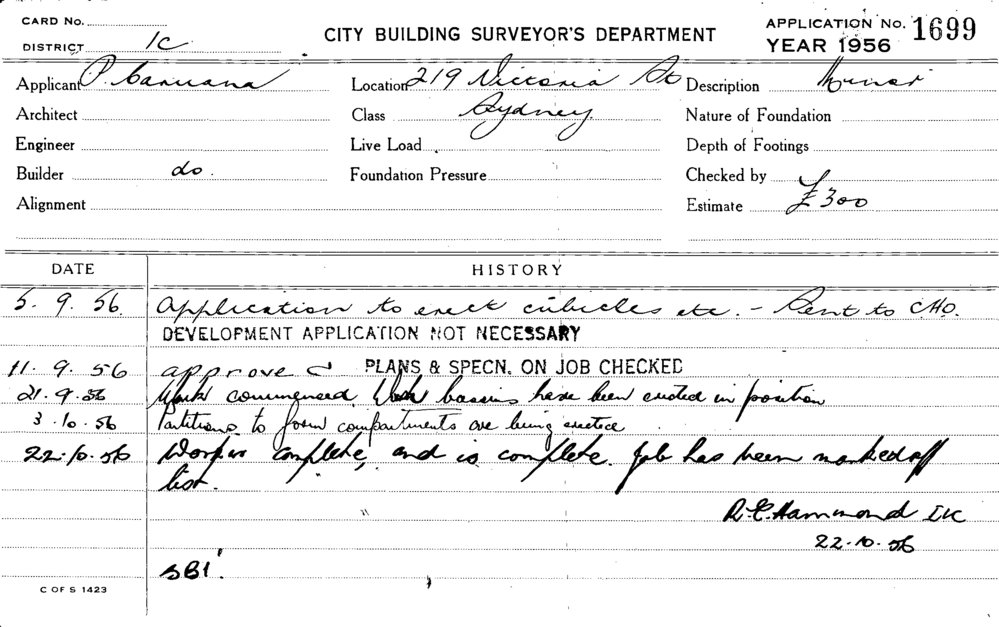 CARD No.
DISTRICT 1C
CITY BUILDING SURVEYOR'S DEPARTMENT
APPLICATION No. 1699
YEAR 1956
Applicant P. Caruana
Location 219 Victoria St
Description Minor
Architect
Class Sydney
Nature of Foundation
Engineer
Live Load
Depth of Footings
Builder do.
Foundation Pressure
Checked by
Alignment
Estimate £300
DATE
HISTORY
5. 9. 56. Application to erect cubicles etc. - Sent to CHO.
DEVELOPMENT APPLICATION NOT NECESSARY
11. 9. 56 approved PLANS & SPECN. ON JOB CHECKED
21. 9. 56 Work commenced. Wash basins have been erected in position
3. 10. 56 Partitions to form compartments are being erected
22. 10. 56 Work is complete, and is complete. Job has been marked off
list.
R.E. Hammond 1C
22. 10. 56
SBI.
C OF S 1423